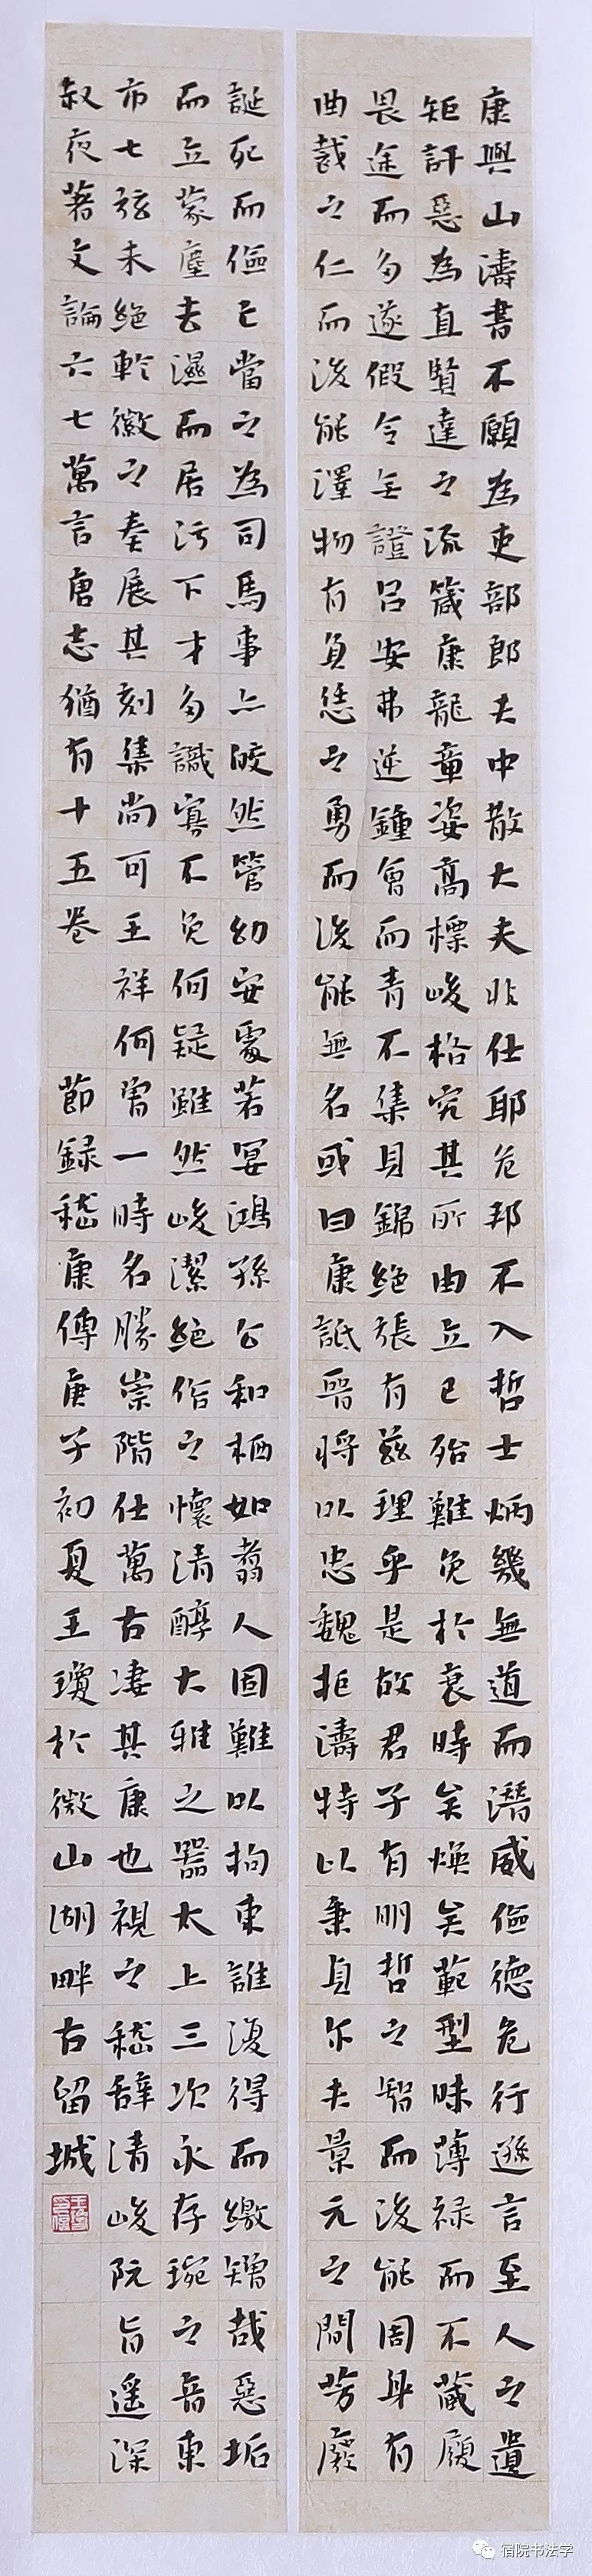 康與山濤書不願為吏部郎夫中散大夫非仕耶危邦不入哲士炳幾無道而潛威儉德危行遜言至人之遺
矩訐惡為直賢達之流箴康龍章姿高標峻格究其所由立已殆難免於衰時矣煥矣範型昧薄祿而不蔵履
畏途而勿遂假令無證呂安弗逆鍾會而青不集貝錦絕張有茲理乎是故君子有明哲之智而後能周身有
曲裁之仁而後能澤物有負恁之勇而後能無名或曰康詆晉將以忠魏拒濤特以秉貞尔夫景元之間芳廢
誕死而儉已當之為司馬事亦皎然管幼安處若冥鴻孫公和栖如翥人固難以拘束誰復得而繳矰哉惡垢
而立蒙塵去濕而居汚下才多識寡不免何疑雖然峻潔絕俗之懷清醇大雅之器太上三次永存琬之音東
市七弦未絕軫徽之奏展其刻集尚可王祥何曾一時名勝崇階仕萬古凄其康也視之嵇辭清峻阮旨遥深
叔夜著文論六七萬言唐志猶有十五卷 節録嵇康傳庚子初夏王瓊於微山湖畔古留城
宿院书法学